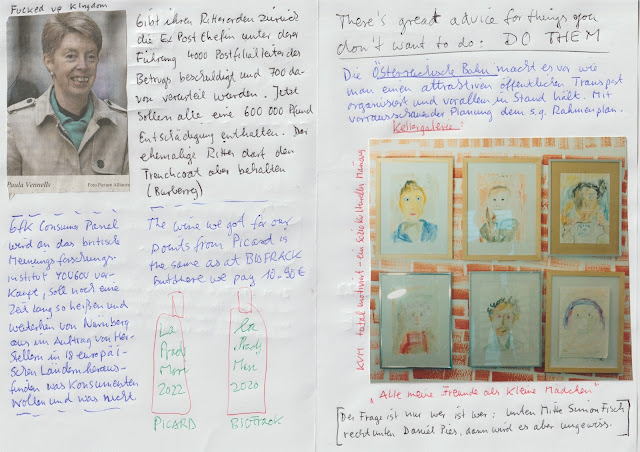 Fucked up Kingdom
Gibt ihren Ritterorden zurück
die Ex Post Chefin unter derer
Führung 4000 Postfilialleiter des
Betrugs beschuldigt und 700 da-
von verurteilt wurden. Jetzt
sollen alle eine 600 000 Pfund
Entschädigung enthalten. Der
ehemalige Ritter darf den
Trenchcoat aber behalten
(Burberry)
Paula Vennells
Foto Picture Alliance
GfK Consumer Panel
wird an das britische
Meinungsforschungs-
institut YOUGOV ver-
kauft, soll noch eine
Zeit lang so heißen und
weiterhin von Nürnberg
aus im Auftrag von Her-
stellern in 18 europäi-
schen Ländern heraus-
finden was Konsumenten
wollen und was nicht
The wine we got for our
Donuts from Picard is
the same as at BIOFRACK
but there we pay 10.90 €
La
Mon
2022
PICARD
La
2020
There's great advice for things you
don't want to do: DO THEM
Die Österreichische Bahn macht es vor wie
man einen attraktiven öffentlichen Transport
organisiert und vorallem in Stand hält. Mit
vorrausschauender Planung dem s.g. Rahmenplan.
Kellergalerie:
KVM total motivient - ein Schock Händler Meinung
"Alle meine Freunde als kleine Mädchen"
Der Frage ist nur wer ist wer: unten Mitte Simon Fisch
recht unten Daniel Pies, dann wird es aber ungewiss.